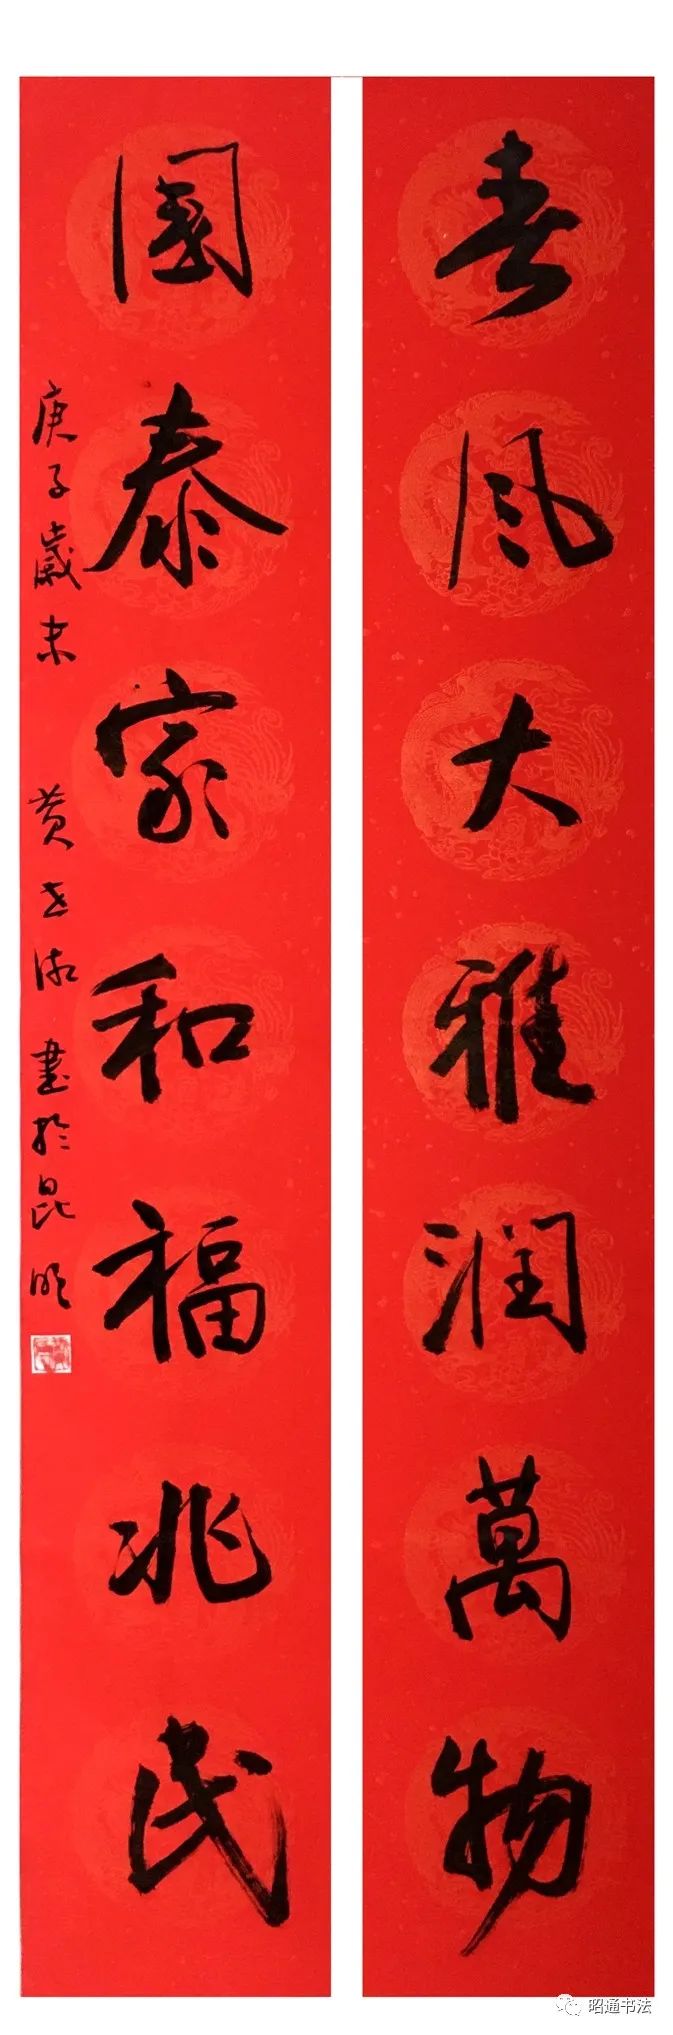 春风大雅润萬物
國泰家和福兆民
庚子歲末 黄 書於昆明
昭通书法